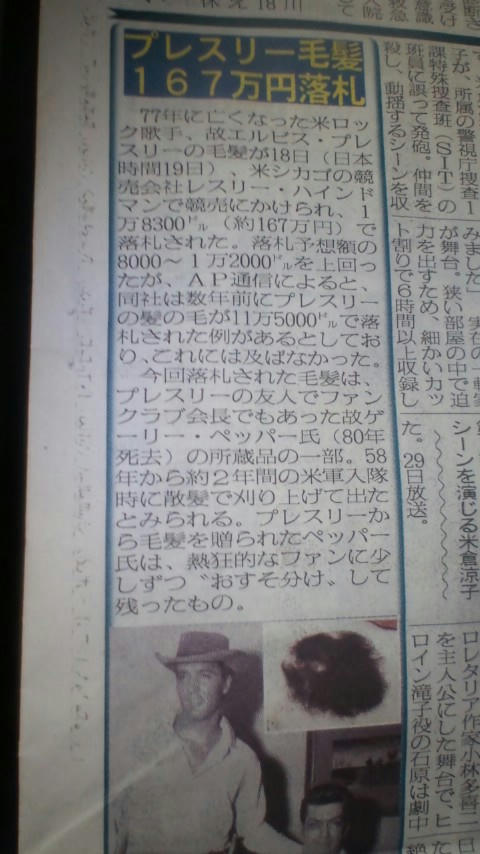 プレスリー毛髪
167万円落札
77年に亡くなった米ロッ
ク歌手、故エルビス・プレ
スリーの毛髪が18日(日本
時間19日)、米シカゴの競
売会社レスリー・ハインド
マンで競売にかけられ、1
万8300㌦(約167万円)で
落札された。落札予想額の
8000~1万2000㌦を上回っ
たが、AP通信によると、
同社は数年前にプレスリー
の髪の毛が11万5000㌦で落
札された例があるとしてお
り、これには及ばなかった。
今回落札された毛髪は、
プレスリーの友人でファン
クラブ会長でもあった故ゲ
ーリー・ペッパー氏(80年
死去)の所蔵品の一部。58
年から約2年間の米軍入隊
時に散髪で刈り上げて出た
とみられる。プレスリーか
ら毛髪を贈られたペッパー
氏は、熱狂的なファンに少
しずつ〝おすそ分け〟して
残ったもの。
子が、所属の警視庁捜査1
課特殊捜査班(SIT)の
班員に誤って発砲。仲間を
殺し、動揺するシーンを収
が舞台。狭い部屋の中で迫
力を出すため、細かいカッ
ト割りで6時間以上収録し
た。29日放送。
シーンを演じる米倉涼子
ロレタリア作家小林多喜二
を主人公にした舞台で、ヒ
ロイン滝子役の石原は劇中